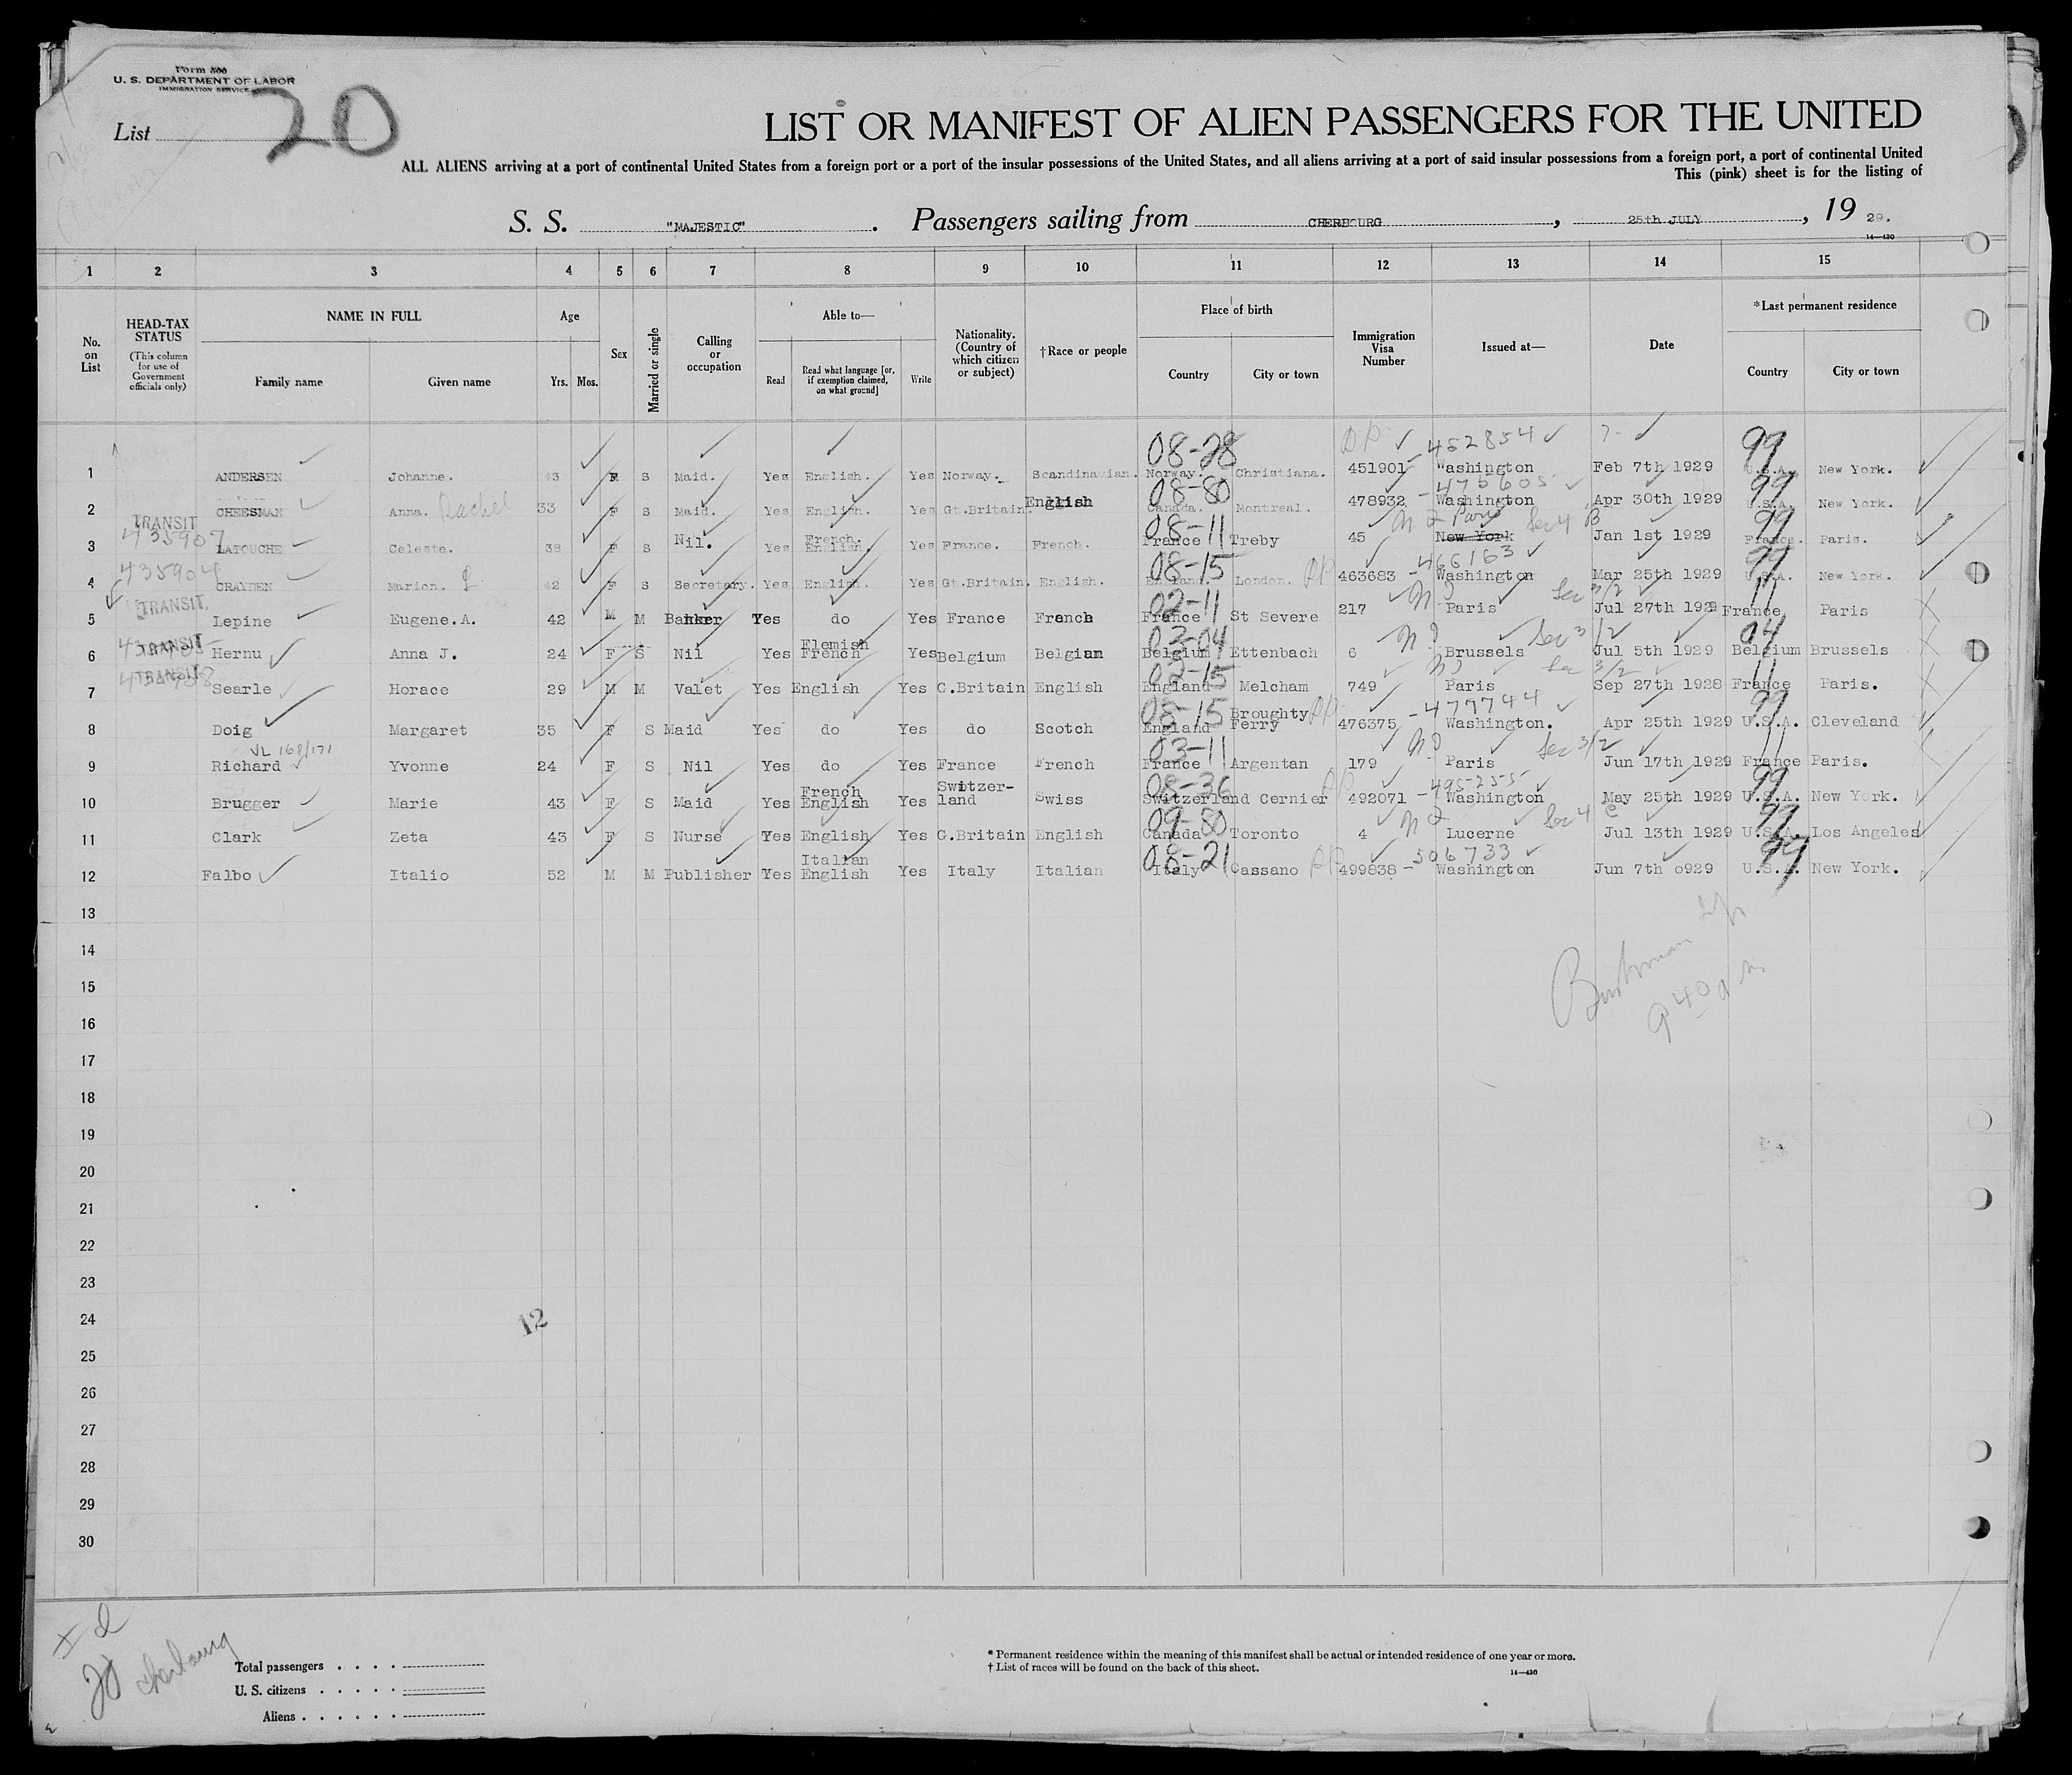 Form 500
U. S. DEPARTMENT OF LABOR
IMMIGRATION SERVICE
List 20
LIST OR MANIFEST OF ALIEN PASSENGERS FOR THE UNITED
ALL ALIENS arriving at a port of continental United States from a foreign port or a port of the insular possessions of the United States, and all aliens arriving at a port of said insular possessions from a foreign port, a port of continental United
This (pink) sheet is for the listing of
S. S. "MAJESTIC". Passengers sailing from CHERBOURG, 25th JULY, 19 29.
14—430
1 2 3 4 5 6 7 8 9 10 11 12 13 14 15
No. on List
HEAD-TAX STATUS (This column for use of Government officials only)
NAME IN FULL Family name Given name
Age Yrs. Mos.
Sex
Married or single
Calling or occupation
Able to— Read Read what language [or, if exemption claimed, on what ground] Write
Nationality. (Country of which citizen or subject)
†Race or people
Place of birth Country City or town
Immigration Visa Number
Issued at—
Date
*Last permanent residence Country City or town
08-28 452854 99
1 ANDERSEN Johanne. 43 F S Maid. Yes English. Yes Norway. Scandinavian. Norway. Christiana. 451901 Washington Feb 7th 1929 U.S.A. New York.
08-80 475605 99
2 CHEESMAN Anna. Rachel 33 F S Maid. Yes English. Yes Gt.Britain. English Canada. Montreal. 478932 Washington Apr 30th 1929 U.S.A. New York.
TRANSIT 435907 08-11 Paris Sec 4 B 99
3 LATOUCHE Celeste. 38 F S Nil. Yes French. English. Yes France. French. France Treby 45 New York Jan 1st 1929 France. Paris.
435904 08-15 466163 99
4 CRAYDEN Marion. 42 F S Secretary. Yes English. Yes Gt.Britain. English. England. London. 463683 Washington Mar 25th 1929 U.S.A. New York.
TRANSIT. 02-11 Sec 3/2 11
5 Lepine Eugene.A. 42 M M Banker Yes do Yes France French France St Severe 217 Paris Jul 27th 1929 France Paris
TRANSIT 03-04 Sec 3/2 04
6 Hernu Anna J. 24 F S Nil Yes Flemish French Yes Belgium Belgian Belgium Ettenbach 6 Brussels Jul 5th 1929 Belgium Brussels
TRANSIT 02-15 Sec 3/2 11
7 Searle Horace 29 M M Valet Yes English Yes G.Britain English England Melcham 749 Paris Sep 27th 1928 France Paris.
08-15 477744 99
8 Doig Margaret 35 F S Maid Yes do Yes do Scotch England Broughty Ferry 476375 Washington. Apr 25th 1929 U.S.A. Cleveland
VL 168/171 03-11 Sec 3/2 11
9 Richard Yvonne 24 F S Nil Yes do Yes France French France Argentan 179 Paris Jun 17th 1929 France Paris.
08-36 495255 99
10 Brugger Marie 43 F S Maid Yes French English Yes Switzer-land Swiss Switzerland Cernier 492071 Washington May 25th 1929 U.S.A. New York.
09-80 Sec 4 99
11 Clark Zeta 43 F S Nurse Yes English Yes G.Britain English Canada Toronto 4 Lucerne Jul 13th 1929 U.S.A. Los Angeles
08-21 506733 99
12 Falbo Italio 52 M M Publisher Yes Italian English Yes Italy Italian Italy Cassano 499838 Washington Jun 7th o929 U.S.A. New York.
13
14
15
16
17
18
19
20
21
22
23
24
25
26
27
28
29
30
12
Cherbourg
Total passengers
U. S. citizens
Aliens
* Permanent residence within the meaning of this manifest shall be actual or intended residence of one year or more.
† List of races will be found on the back of this sheet.
14—430